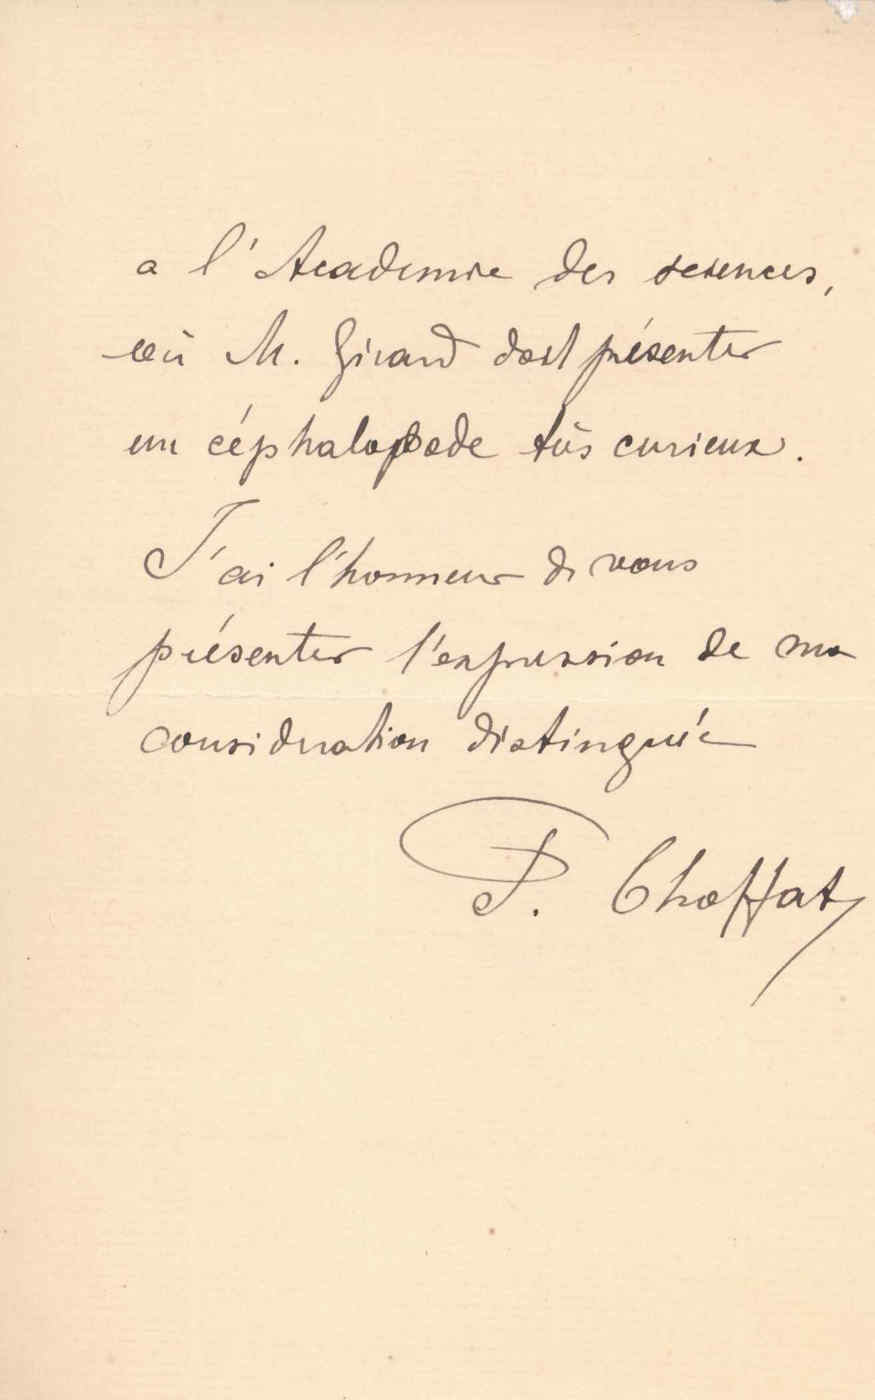 a l'Academie des sciences,
où M. Girard doit présenter
un céphalopode très curieux.
J'ai l'honneur de vous
présenter l'expression de ma
consideration distinguée
P. Choffat